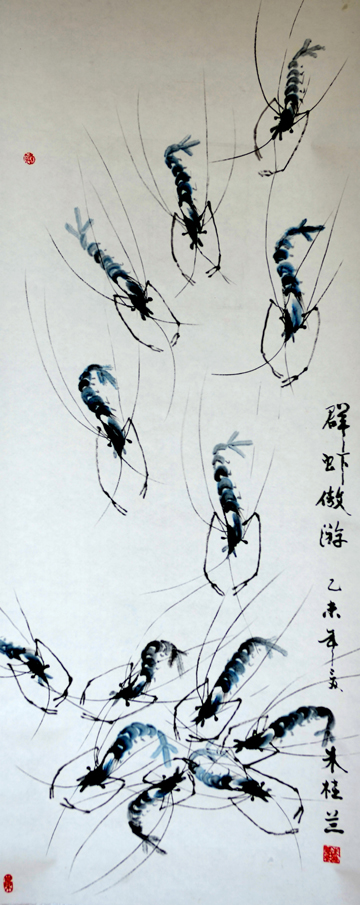 群虾傲游 乙未年 朱桂兰